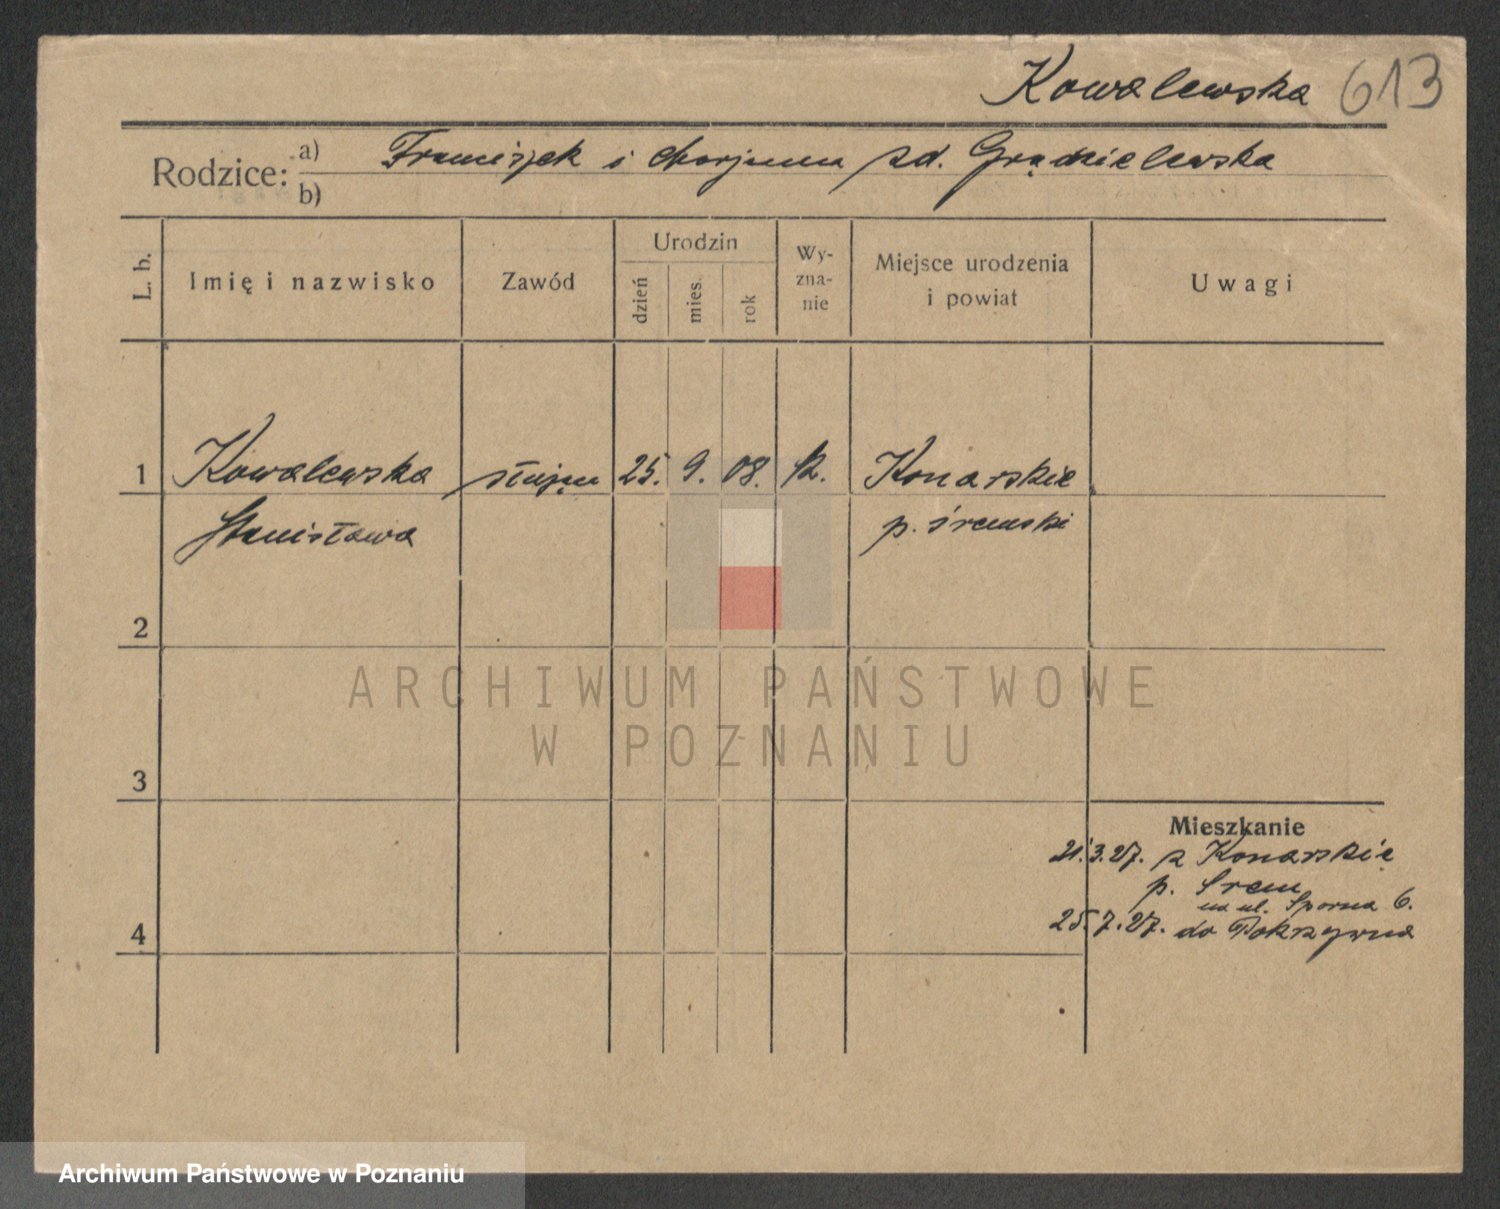 Kowalewska 613
Rodzice: a) Franciszek i Marjanna zd. Grądzielewska
b)
L. b.
Imię i nazwisko
Zawód
Urodzin
dzień
mies.
rok
Wy-
zna-
nie
Miejsce urodzenia
i powiat
Uwagi
1 Kowalewska służąca 25. 9. 08. k. Konarskie
Stanisława p. śremski
2
ARCHIWUM PAŃSTWOWE
W POZNANIU
3
Mieszkanie
21.3.27. z Konarskie
p. Śrem
na ul. Sporna 6.
4 25.7.27. do Pokrzywna
Archiwum Państwowe w Poznaniu